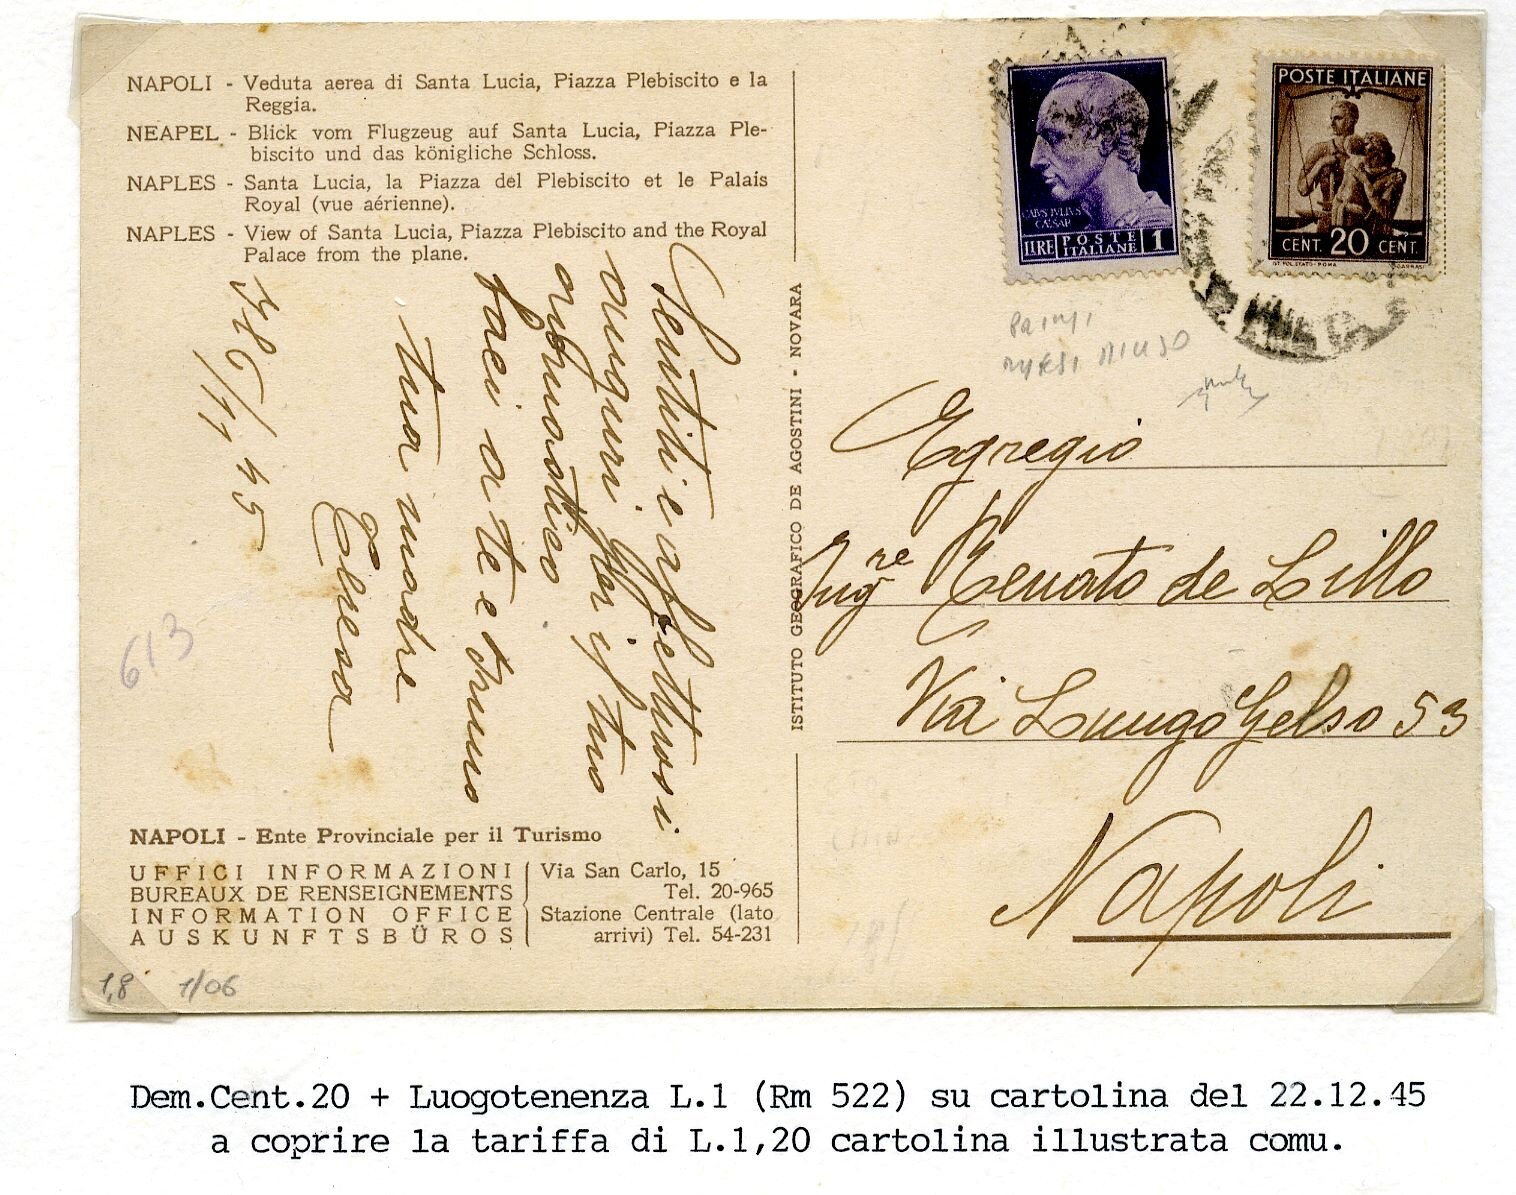 NAPOLI - Veduta aerea di Santa Lucia, Piazza Plebiscito e la
Reggia.
NEAPEL - Blick vom Flugzeug auf Santa Lucia, Piazza Ple-
biscito und das königliche Schloss.
NAPLES - Santa Lucia, la Piazza del Plebiscito et le Palais
Royal (vue aérienne).
NAPLES - View of Santa Lucia, Piazza Plebiscito and the Royal
Palace from the plane.
Sentiti e affettuosi
auguri per il tuo
onomastico
faci a te e
tua madre
Teresa
613
NAPOLI - Ente Provinciale per il Turismo
UFFICI INFORMAZIONI
BUREAUX DE RENSEIGNEMENTS
INFORMATION OFFICE
AUSKUNFTSBÜROS
Via San Carlo, 15
Tel. 20-965
Stazione Centrale (lato
arrivi) Tel. 54-231
1,8 1/06
ISTITUTO GEOGRAFICO DE AGOSTINI - NOVARA
CAIVS IVLIVS
CAESAR
LIRE POSTE ITALIANE 1
POSTE ITALIANE
CENT. 20 CENT.
IST. POL. STATO - ROMA
Egregio
Ingre Renato de Lillo
Via Lungo Gelso 53
Napoli
Dem.Cent.20 + Luogotenenza L.1 (Rm 522) su cartolina del 22.12.45
a coprire la tariffa di L.1,20 cartolina illustrata comu.